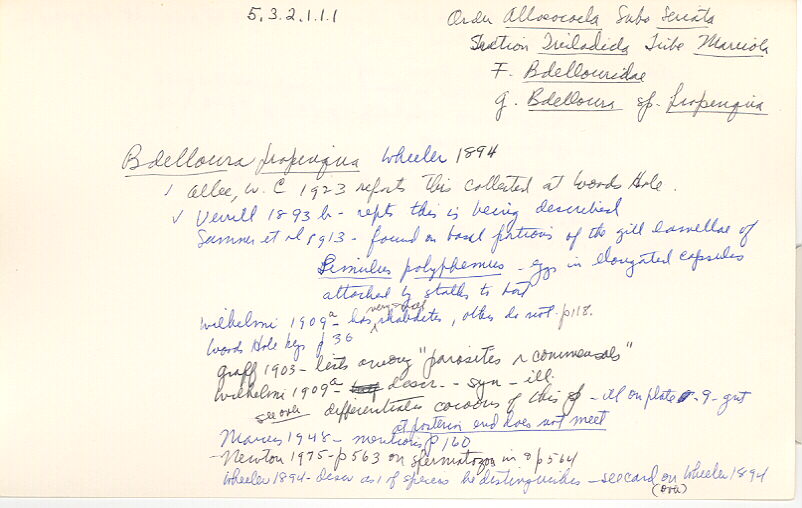 5.3.2.1.1.1
Order Alloeocoela Subo Seriata
Section Tricladida Tribe Maricola
F. Bdellouridae
g. Bdelloura sp. propinqua
Bdelloura propinqua Wheeler 1894
✓ Allee, W.C 1923 reports this collected at Woods Hole.
✓ Verrill 1893 b - repts this is being described
Sumner et al 1913 - found on basal portions of the gill lamellae of
Limulus polyphemus - eggs in elongated capsules
attached by stalks to host
Wilhelmi 1909a - has rhabdites, others do not - p118.
Woods Hole keys p 36
Graff 1903 - lists among "parasites r commensals"
Wilhelmi 1909a - descr. - syn - ill.
see over differentiates cocoons of this - ill on plate - 9 - gut
at posterior end does not meet
Marcus 1948 - mentions p 160
- Newton 1975 - p 563 on spermatozoa in p 564
Wheeler 1894 - descr as 1 of species he distinguishes - see card on Wheeler 1894
(over)